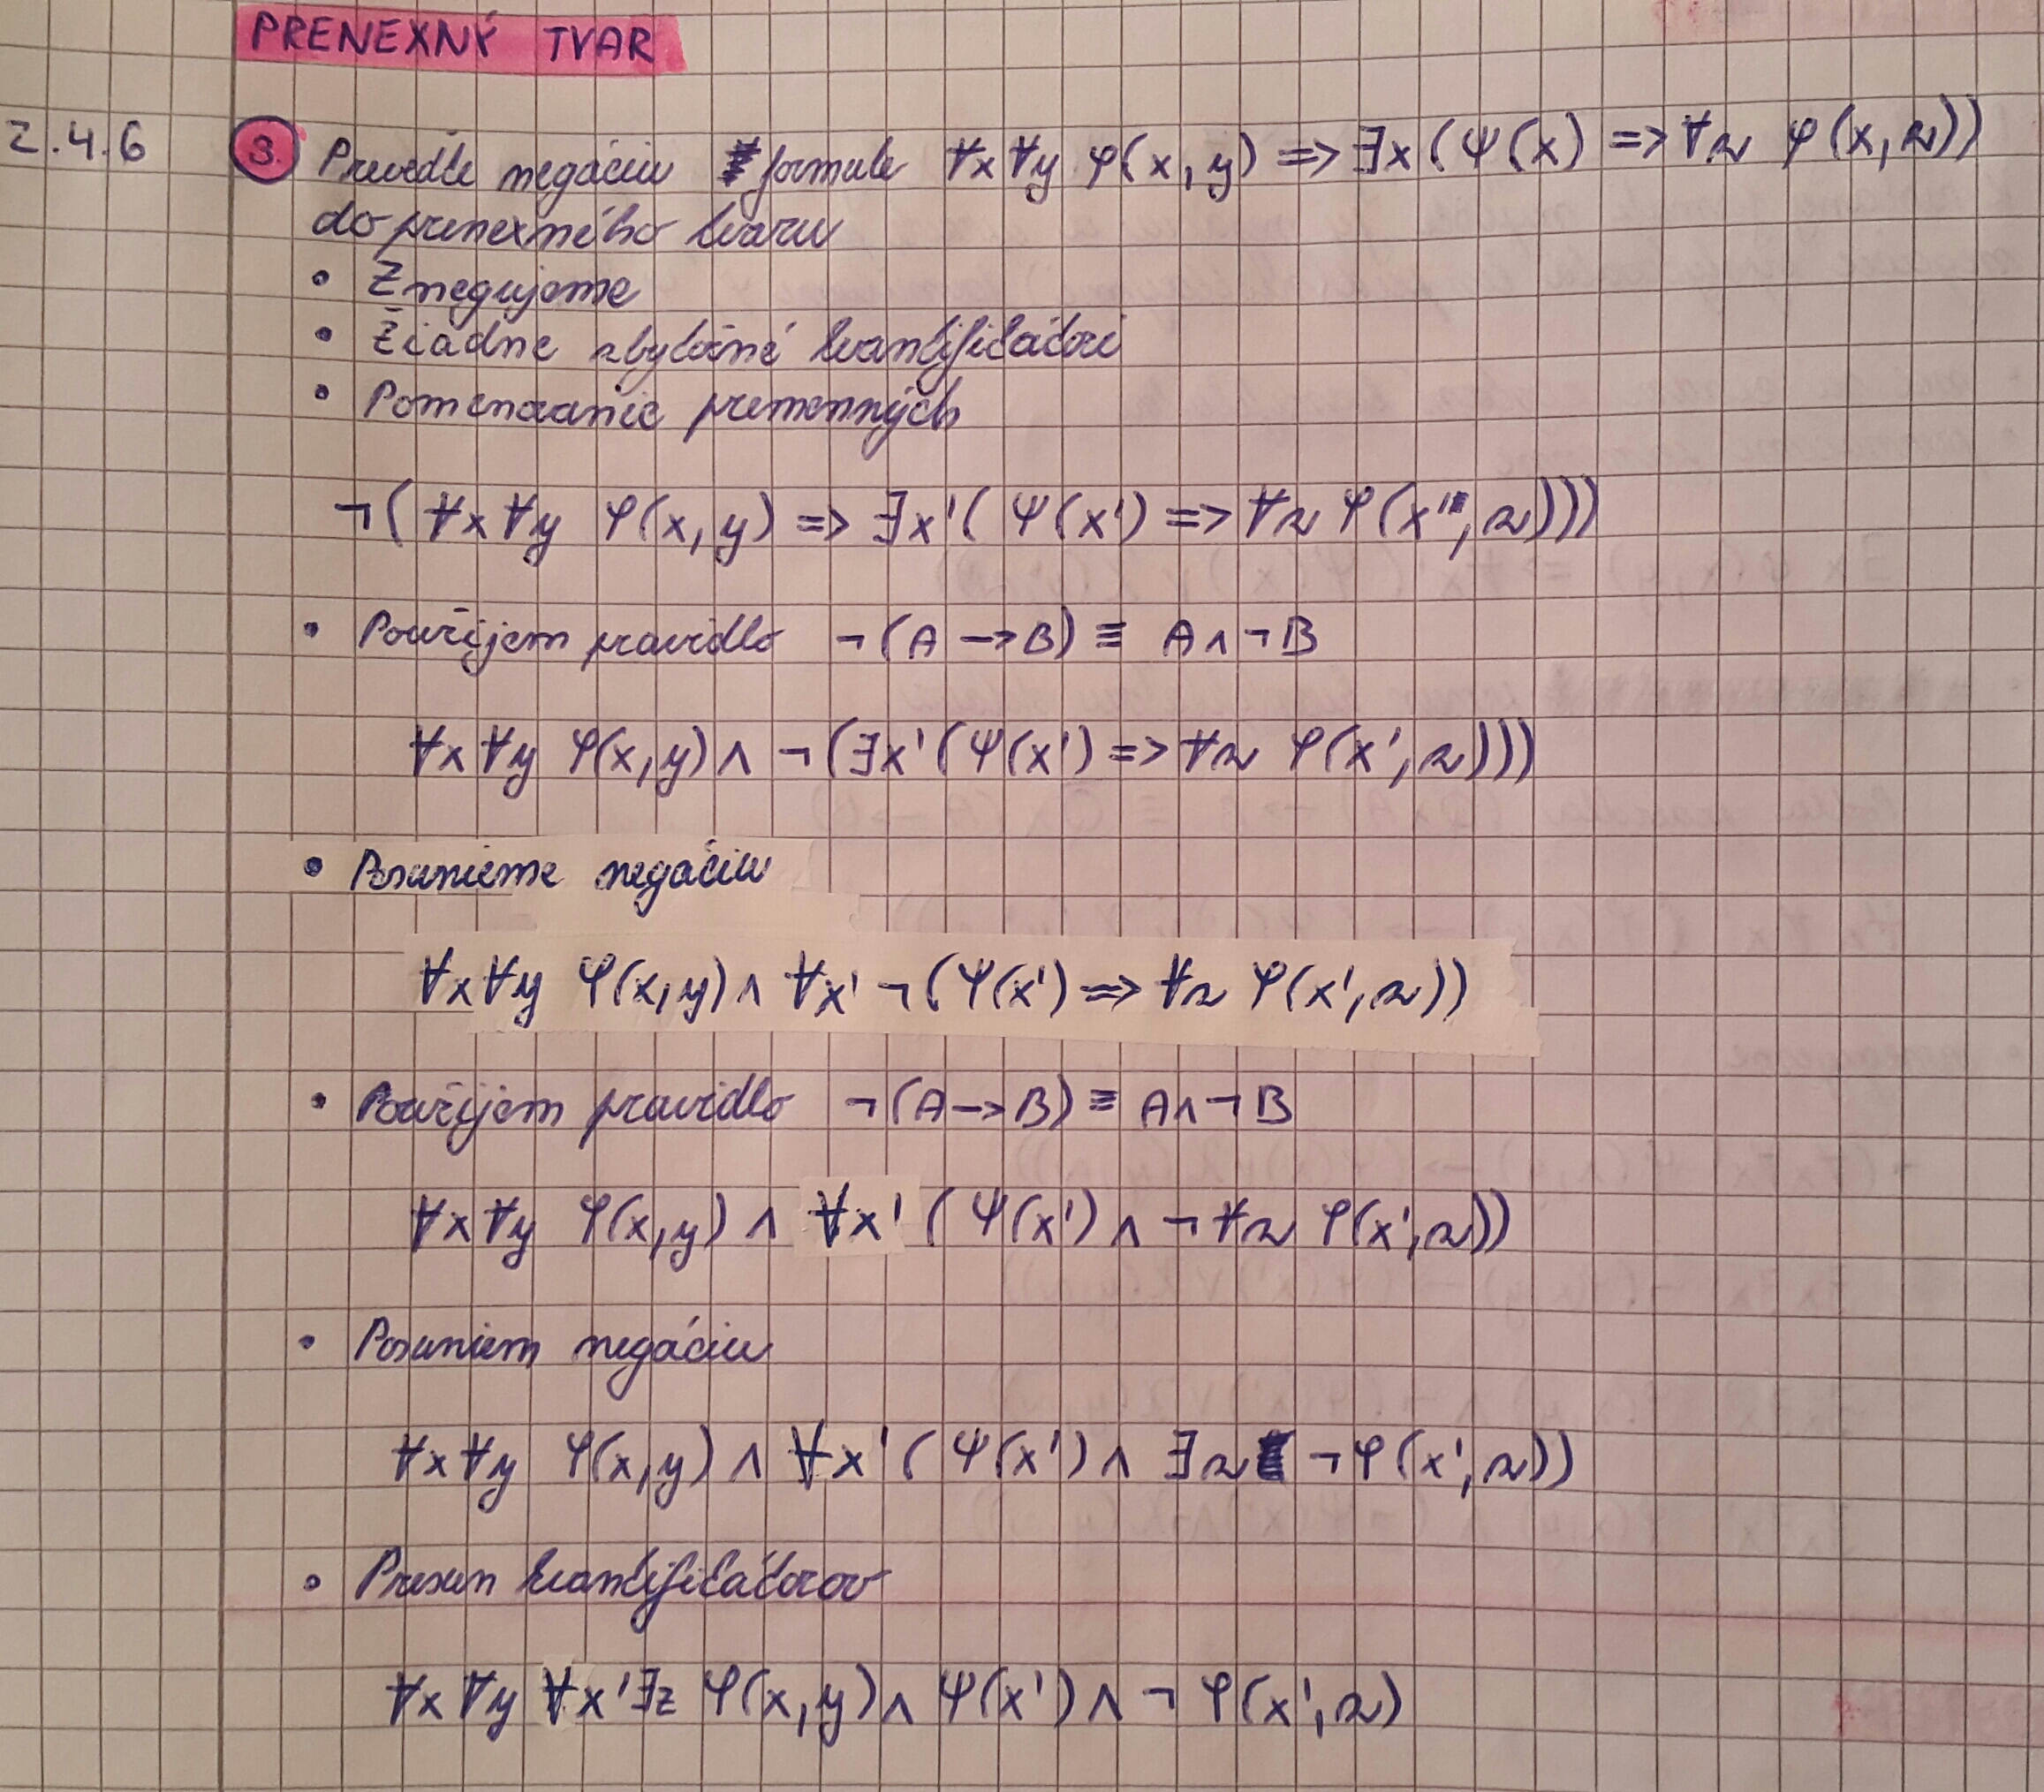 PRENEXNÝ TVAR
2.4.6 3. Preveďte negáciu formule ∀x∀y φ(x,y) => ∃x(Ψ(x) => ∀z φ(x,z))
do prenexného tvaru
• Znegujeme
• Žiadne zbytočné kvantifikátori
• Pomenovanie premenných
¬(∀x∀y φ(x,y) => ∃x'(Ψ(x') => ∀z φ(x',z)))
• Použijem pravidlo ¬(A → B) ≡ A ∧ ¬B
∀x∀y φ(x,y) ∧ ¬(∃x'(Ψ(x') => ∀z φ(x',z)))
• Posunieme negáciu
∀x∀y φ(x,y) ∧ ∀x' ¬(Ψ(x') => ∀z φ(x',z))
• Použijem pravidlo ¬(A → B) ≡ A ∧ ¬B
∀x∀y φ(x,y) ∧ ∀x' (Ψ(x') ∧ ¬∀z φ(x',z))
• Posuniem negáciu
∀x∀y φ(x,y) ∧ ∀x' (Ψ(x') ∧ ∃z ¬φ(x',z))
• Presun kvantifikátorov
∀x∀y∀x'∃z φ(x,y) ∧ Ψ(x') ∧ ¬φ(x',z)